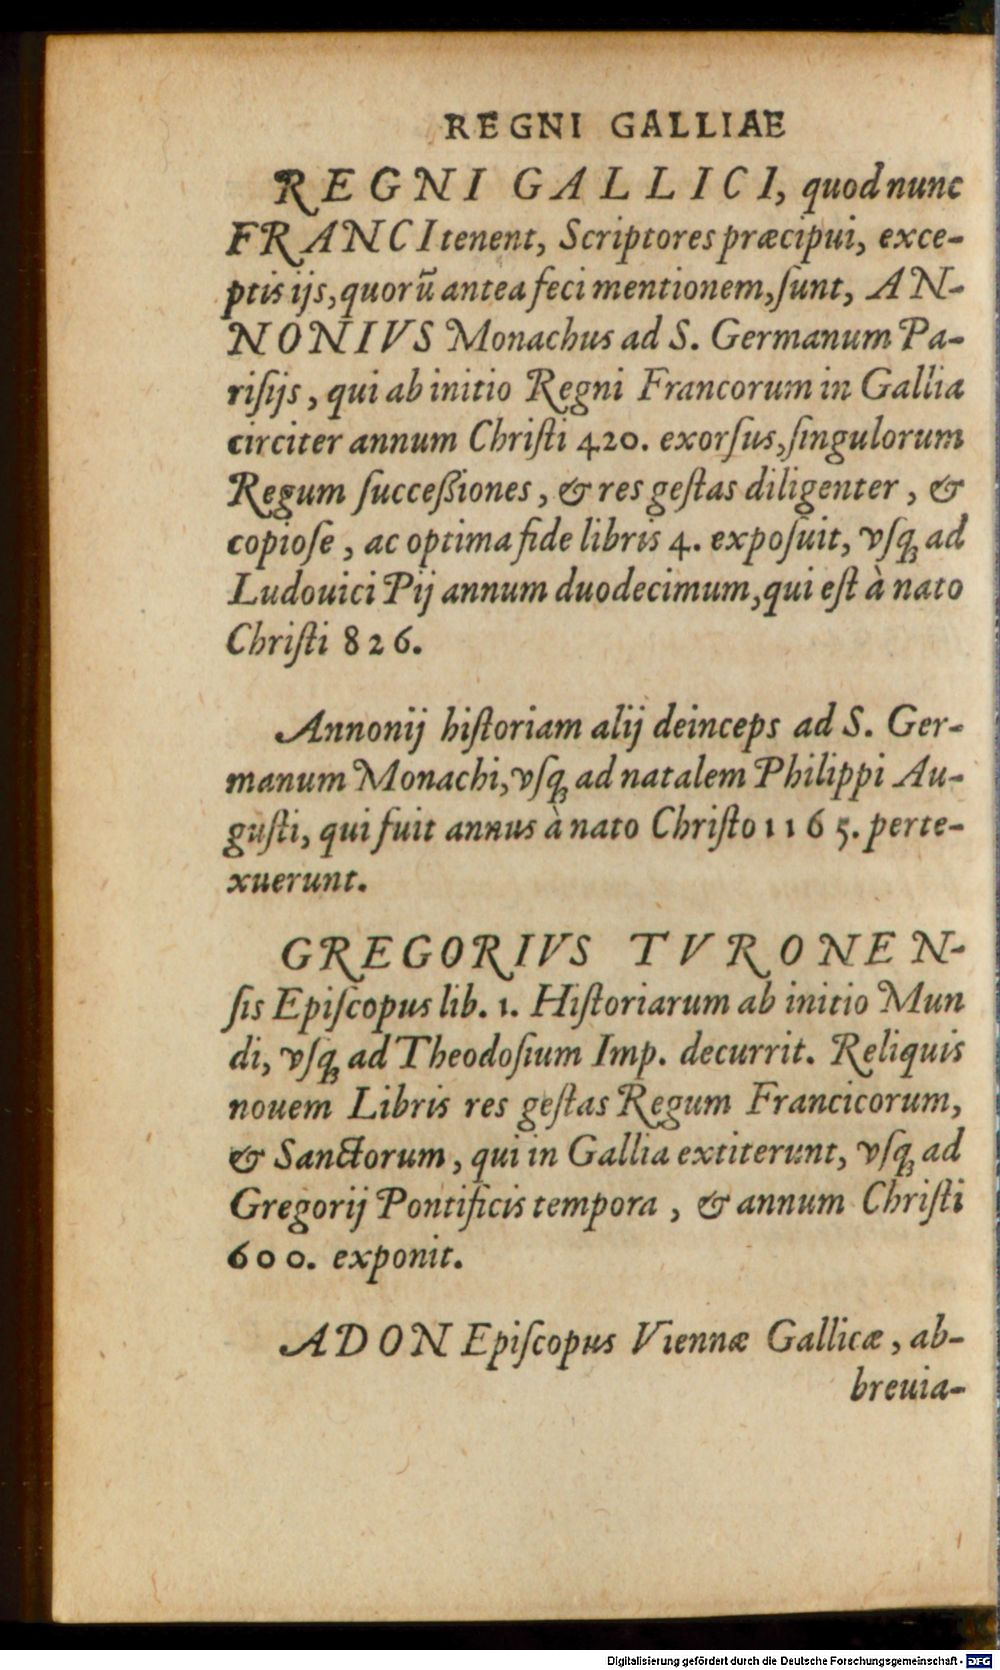 REGNI GALLIAE
REGNI GALLICI, quod nunc
FRANCI tenent, Scriptores præcipui, exce-
ptis ijs, quorũ antea feci mentionem, ſunt, AN-
NONIVS Monachus ad S. Germanum Pa-
riſijs, qui ab initio Regni Francorum in Gallia
circiter annum Chriſti 420. exorſus, ſingulorum
Regum ſucceßiones, & res geſtas diligenter, &
copioſe, ac optima fide libris 4. expoſuit, vſq; ad
Ludouici Pij annum duodecimum, qui eſt à nato
Chriſti 826.
Annonij hiſtoriam alij deinceps ad S. Ger-
manum Monachi, vſq; ad natalem Philippi Au-
guſti, qui fuit annus à nato Chriſto 1165. perte-
xuerunt.
GREGORIVS TVRONEN-
ſis Epiſcopus lib. 1. Hiſtoriarum ab initio Mun
di, vſq; ad Theodoſium Imp. decurrit. Reliquis
nouem Libris res geſtas Regum Francicorum,
& Sanctorum, qui in Gallia extiterunt, vſq; ad
Gregorij Pontificis tempora, & annum Chriſti
600. exponit.
ADON Epiſcopus Viennæ Gallicæ, ab-
breuia-
Digitalisierung gefördert durch die Deutsche Forschungsgemeinschaft - DFG